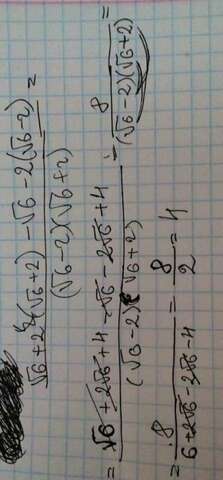 (√6+2(√6+2) - √6 - 2(√6-2)) / ((√6-2)(√6+2)) =
= (√6 + 2√6 + 4 - √6 - 2√6 + 4) / ((√6-2)(√6+2)) = 8 / ((√6-2)(√6+2)) =
= 8 / (6+2√6-2√6-4) = 8/2 = 4